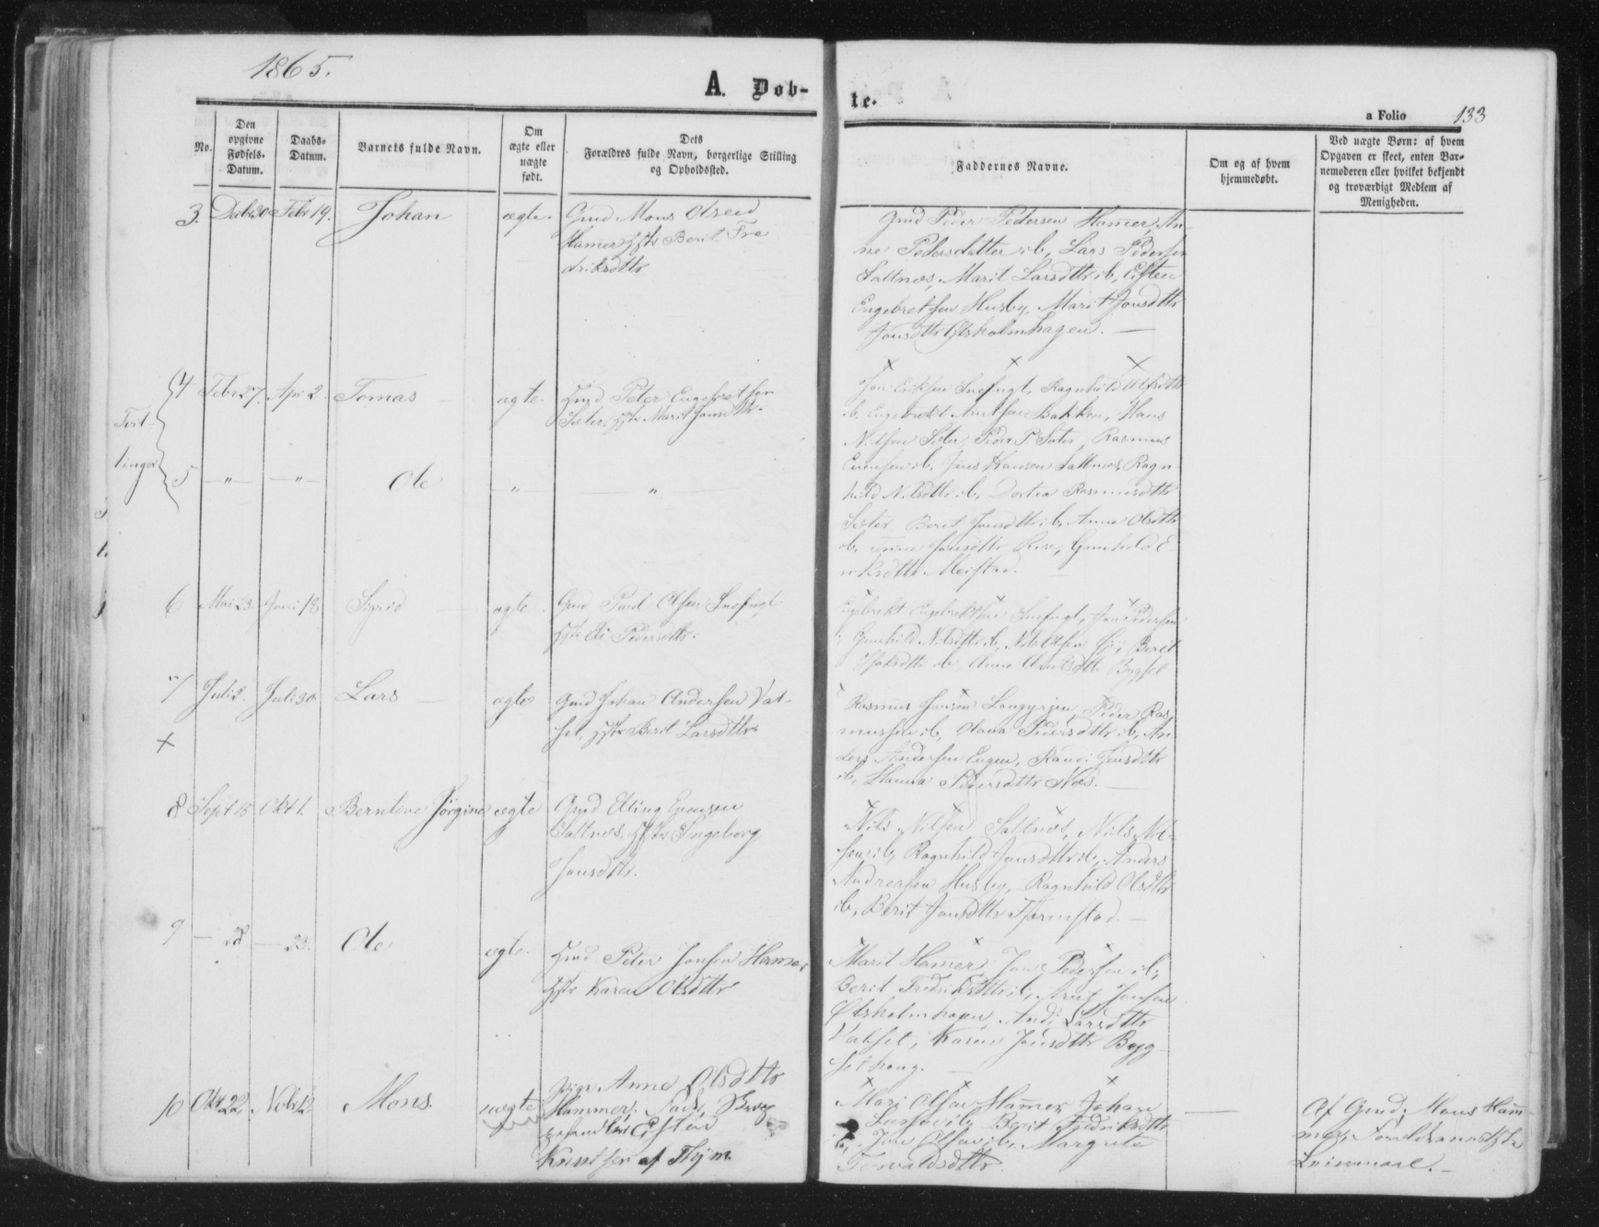 1865.
A. Døb-
te.
a Folio 133
No.
Den opgivne Fødsels-Datum.
Daabs-Datum.
Barnets fulde Navn.
Om ægte eller uægte født.
Dets Forældres fulde Navn, borgerlige Stilling og Opholdssted.
Faddernes Navne.
Om og af hvem hjemmedøbt.
Ved uægte Børn: af hvem Opgaven er skeet, enten Barnemoderen eller hvilket bekjendt og troværdigt Medlem af Menigheden.
3. Febr 19. Johan ægte. Gmd Mons Olsen
Hamer Hst Berit Fre
driksdttr
Gmd Peder Pedersen Hamer, An-
ne Pedersdatter ib, Lars Pedersen
Saltnes, Marit Larsdttr ib, Esten
Engebretsen Husby, Marit Jonsdttr
Jonsdttr Øksholmhagen. —
Tvil-
linger
4 Febr 27. Apr 2. Tomas ægte. Gmd Peter Engebretsen
Sæter, Hst Marit Jonsdttr.
5 — " — — " — Ole — " — — " —
Jon Eriksen Snefugl, Ragnhild Olsdttr
ib, Engebrekt Arntsen Bakken, Hans
Nilsen Seter, Peder P Seter, Rasmus
ib, Jens Hansen Saltnes, Ragn
hild Nilsdttr ib, Dortea Rasmusdttr
Seter, Beret Jonsdttr ib, Anne Olsdttr
ib, Jonsdttr Gunhild E
riksdttr Meistad.
6 Mai 23 Juni 18 Sigrid — ægte Gmd Paul Olsen Snefugl
Hst Eli Pedersdttr.
Engebrekt Engebrektsen Snefugl, Jon Pedersen
Gunhild Nilsdttr ib, Nils Olsen Berit
ib Anne Arntsdttr Bygset
7 Juli 2. Juli 30 Lars — ægte Gmd Johan Andersen Vat-
sel, Hst Berit Larsdttr
Rasmus Jonsen Langørgen, Peder Ras-
mussen ib, Olava Pedersdttr ib, An-
ders Andersen Engen, Randi Jonsdttr
ib, Hanna Pedersdttr Næs. —
8 Sept 15 Okt 1. Berntine Jørgine ægte Gmd Elling Evensen
Saltnes, Hst Ingeborg
Jonsdttr.
Nils Nilsen Saltnes, Nils Nil-
sen ib, Ragnhild Jonsdttr ib, Anders
Andreasen Husby, Ragnhild Olsdttr
ib, Berit Jonsdttr Tjernstad. —
9 — 28 — 23. Ole ægte. Gmd Peter Jonsen Hamer
Hst Karen Olsdttr
Marit Hamer, Jon Pedersen ib,
Berit Fredriksdttr ib, Arnt Jonsen
Øksholmhagen, Larsdttr
Vatsel, Karen Jonsdttr Byg
sethaug.
10 Okt 22 Nobr 12 Mons. uægte Pige Anne Olsdttr
Hammer, Esten
Knudsen af Thjm.
Mari Olsen Hamer, Johan
Larsen ib, Berit Fredriksdttr
ib, Jon Olsen ib, Margrete
Torvaldsdttr.
—
Af Gmd. Mons Ham-
mer,
Leiermaal. —